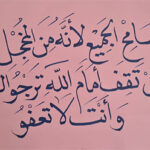 سامح الجميع لأنه من المخجل
تقف أمام الله ترجوا
وأنت لا تعفو